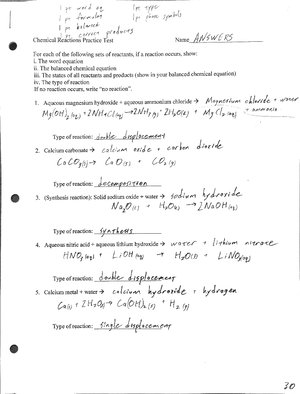 1 pt word eq 1 pt type
1 pt formulas 1 pt phase symbols
1 pt balanced
1 pt correct products
Chemical Reactions Practice Test Name ANSWERS
For each of the following sets of reactants, if a reaction occurs, show:
i. The word equation
ii. The balanced chemical equation
iii. The states of all reactants and products (show in your balanced chemical equation)
iv. The type of reaction
If no reaction occurs, write "no reaction".
1. Aqueous magnesium hydroxide + aqueous ammonium chloride → Magnesium chloride + water
+ ammonia
Mg(OH)₂(aq) + 2NH₄Cl(aq) → 2NH₃(g) + 2H₂O(l) + MgCl₂(aq)
Type of reaction: double displacement
2. Calcium carbonate → calcium oxide + carbon dioxide
CaCO₃(s) → CaO(s) + CO₂(g)
Type of reaction: decomposition
3. (Synthesis reaction): Solid sodium oxide + water → sodium hydroxide
Na₂O(s) + H₂O(l) → 2NaOH(aq)
Type of reaction: synthesis
4. Aqueous nitric acid + aqueous lithium hydroxide → water + lithium nitrate
HNO₃(aq) + LiOH(aq) → H₂O(l) + LiNO₃(aq)
Type of reaction: double displacement
5. Calcium metal + water → calcium hydroxide + hydrogen
Ca(s) + 2H₂O(l) → Ca(OH)₂(s) + H₂(g)
Type of reaction: single displacement
30